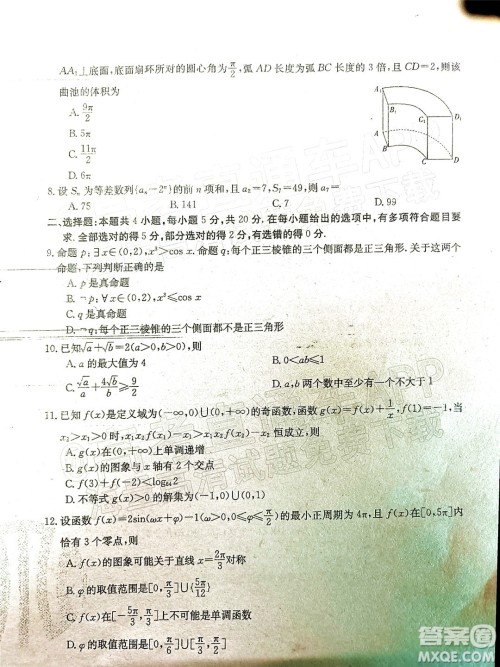 AA₁⊥底面,底面扇环所对的圆心角为π/2,弧 AD 长度为弧 BC 长度的 3 倍,且 CD=2,则该
曲池的体积为
A. 9π/2
B. 5π
C. 11π/2
D. 6π
A₁
B₁
C₁
D₁
A
B
C
D
8. 设 Sₙ 为等差数列{aₙ-2ⁿ}的前 n 项和,且 a₂=7,S₇=49,则 a₇=
A. 75 B. 141 C. 7 D. 99
二、选择题:本题共 4 小题,每小题 5 分,共 20 分.在每小题给出的选项中,有多项符合题目要
求.全部选对的得 5 分,部分选对的得 2 分,有选错的得 0 分.
9. 命题 p:∃x∈(0,2),x³>cos x.命题 q:每个正三棱锥的三个侧面都是正三角形.关于这两个
命题,下列判断正确的是
A. p 是真命题
B. ¬p:∀x∈(0,2),x³≤cos x
C. q 是真命题
D. ¬q:每个正三棱锥的三个侧面都不是正三角形
10. 已知√a+√b=2(a>0,b>0),则
A. a 的最大值为 4 B. 0<ab≤1
C. √a/a+4√b/b≥9/2 D. a,b 两个数中至少有一个不大于 1
11. 已知 f(x)是定义域为(-∞,0)∪(0,+∞)的奇函数,函数 g(x)=f(x)+1/x,f(1)=-1,当
x₂>x₁>0 时,x₁x₂f(x₂)-x₁x₂f(x₁)>x₁-x₂ 恒成立,则
A. g(x)在(0,+∞)上单调递增
B. g(x)的图象与 x 轴有 2 个交点
D. 不等式 g(x)>0 的解集为(-1,0)∪(1,+∞)
12. 设函数 f(x)=2sin(ωx+φ)-1(ω>0,0≤φ≤π/2)的最小正周期为 4π,且 f(x)在[0,5π]内
恰有 3 个零点,则
A. f(x)的图象可能关于直线 x=2π/3 对称
B. φ 的取值范围是[0,π/3]∪{5π/12}
C. f(x)在[-5π/3,π/3]上不可能是单调函数
D. φ 的取值范围是[0,π/6]∪{π/2}
答案圈
MXQE.COM